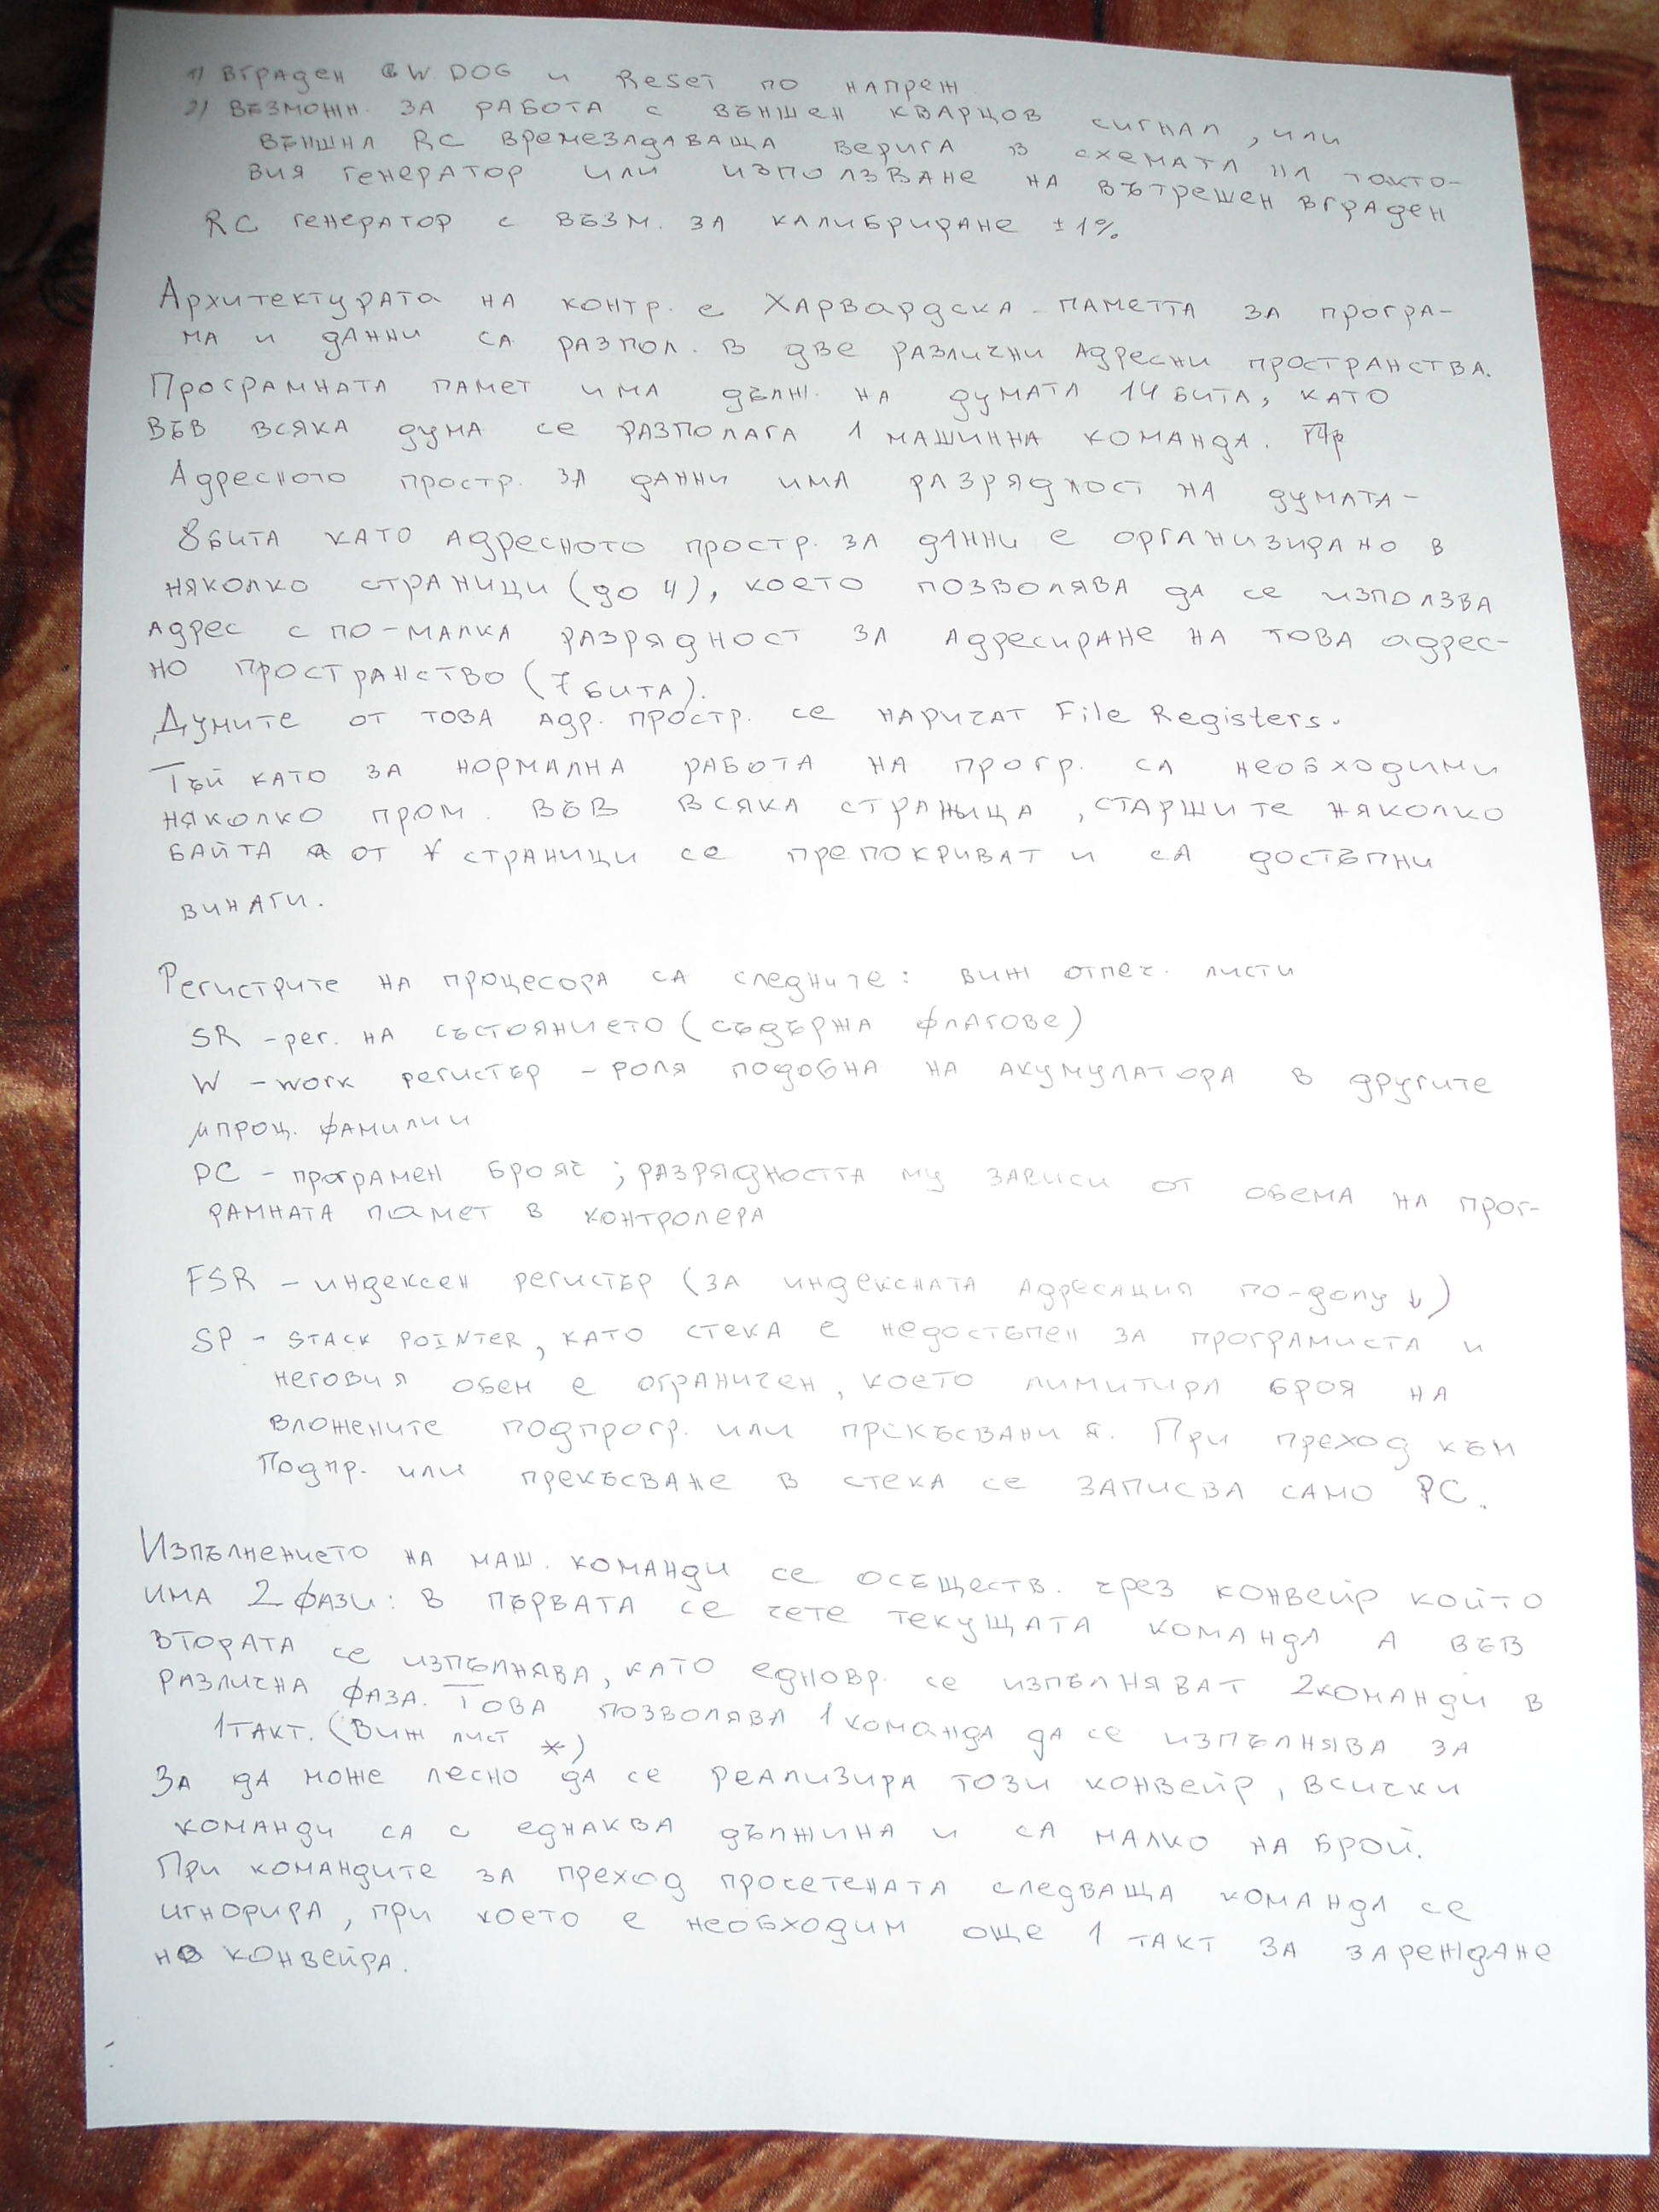 1) Вграден W DOG и Reset по напреж
2) Възможн. за работа с външен кварцов сигнал, или
външна RC времезадаваща верига в схемата на такто-
вия генератор или използване на вътрешен вграден
RC генератор с възм. за калибриране ±1%
Архитектурата на контр. е Харвардска - паметта за програ-
ма и данни са разпол. в две различни адресни пространства.
Програмната памет има дълж. на думата 14 бита, като
във всяка дума се разполага 1 машинна команда. Пр
Адресното простр. за данни има разрядност на думата -
8 бита като адресното простр. за данни е организирано в
няколко страници (до 4), което позволява да се използва
адрес с по-малка разрядност за адресиране на това адрес-
но пространство (7 бита).
Думите от това адр. простр. се наричат File Registers.
Тъй като за нормална работа на прогр. са необходими
няколко пром. във всяка страница, старшите няколко
байта от ∀ страници се препокриват и са достъпни
винаги.
Регистрите на процесора са следните: виж отпеч. листи
SR - рег. на състоянието (съдържа флагове)
W - work регистър - роля подобна на акумулатора в другите
μпроц. фамилии
PC - програмен брояч; разрядността му зависи от обема на прог-
рамната памет в контролера
FSR - индексен регистър (за индексната адресация по-долу ↓)
SP - STACK POINTER, като стека е недостъпен за програмиста и
неговия обем е ограничен, което лимитира броя на
вложените подпрогр. или прекъсвания. При преход към
Подпр. или прекъсване в стека се записва само PC.
Изпълнението на маш. команди се осъществ. чрез конвейр който
има 2 фази: в първата се чете текущата команда а във
втората се изпълнява, като едновр. се изпълняват 2 команди в
различна фаза. Това позволява 1 команда да се изпълнява за
1 такт. (Виж лист *)
За да може лесно да се реализира този конвейр, всички
команди са с еднаква дължина и са малко на брой.
При командите за преход прочетената следваща команда се
игнорира, при което е необходим още 1 такт за зареждане
на конвейра.